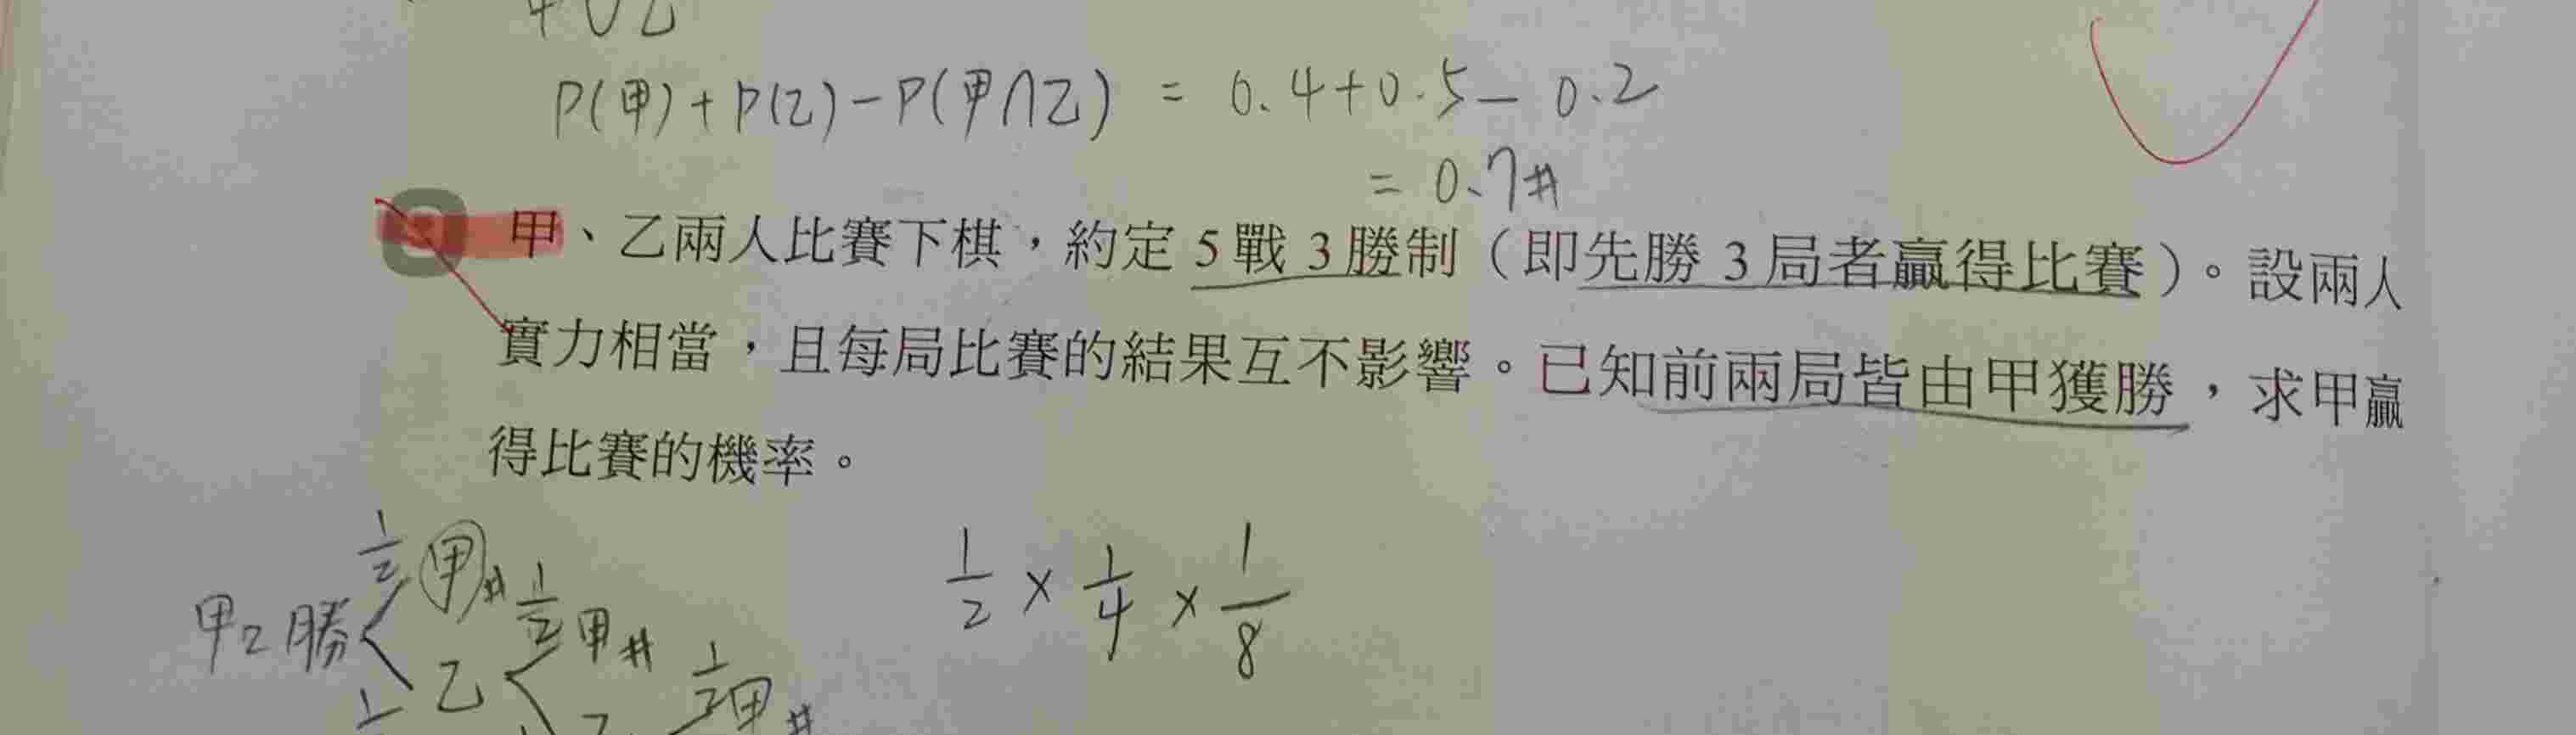 P(甲)+P(乙)-P(甲∩乙) = 0.4+0.5-0.2
= 0.7#
甲、乙兩人比賽下棋,約定 5 戰 3 勝制(即先勝 3 局者贏得比賽)。設兩人
實力相當,且每局比賽的結果互不影響。已知前兩局皆由甲獲勝,求甲贏
得比賽的機率。
1/2 甲# 1/2 甲# 1/2 甲#
甲2勝 1/2 乙 乙
1/2 × 1/4 × 1/8